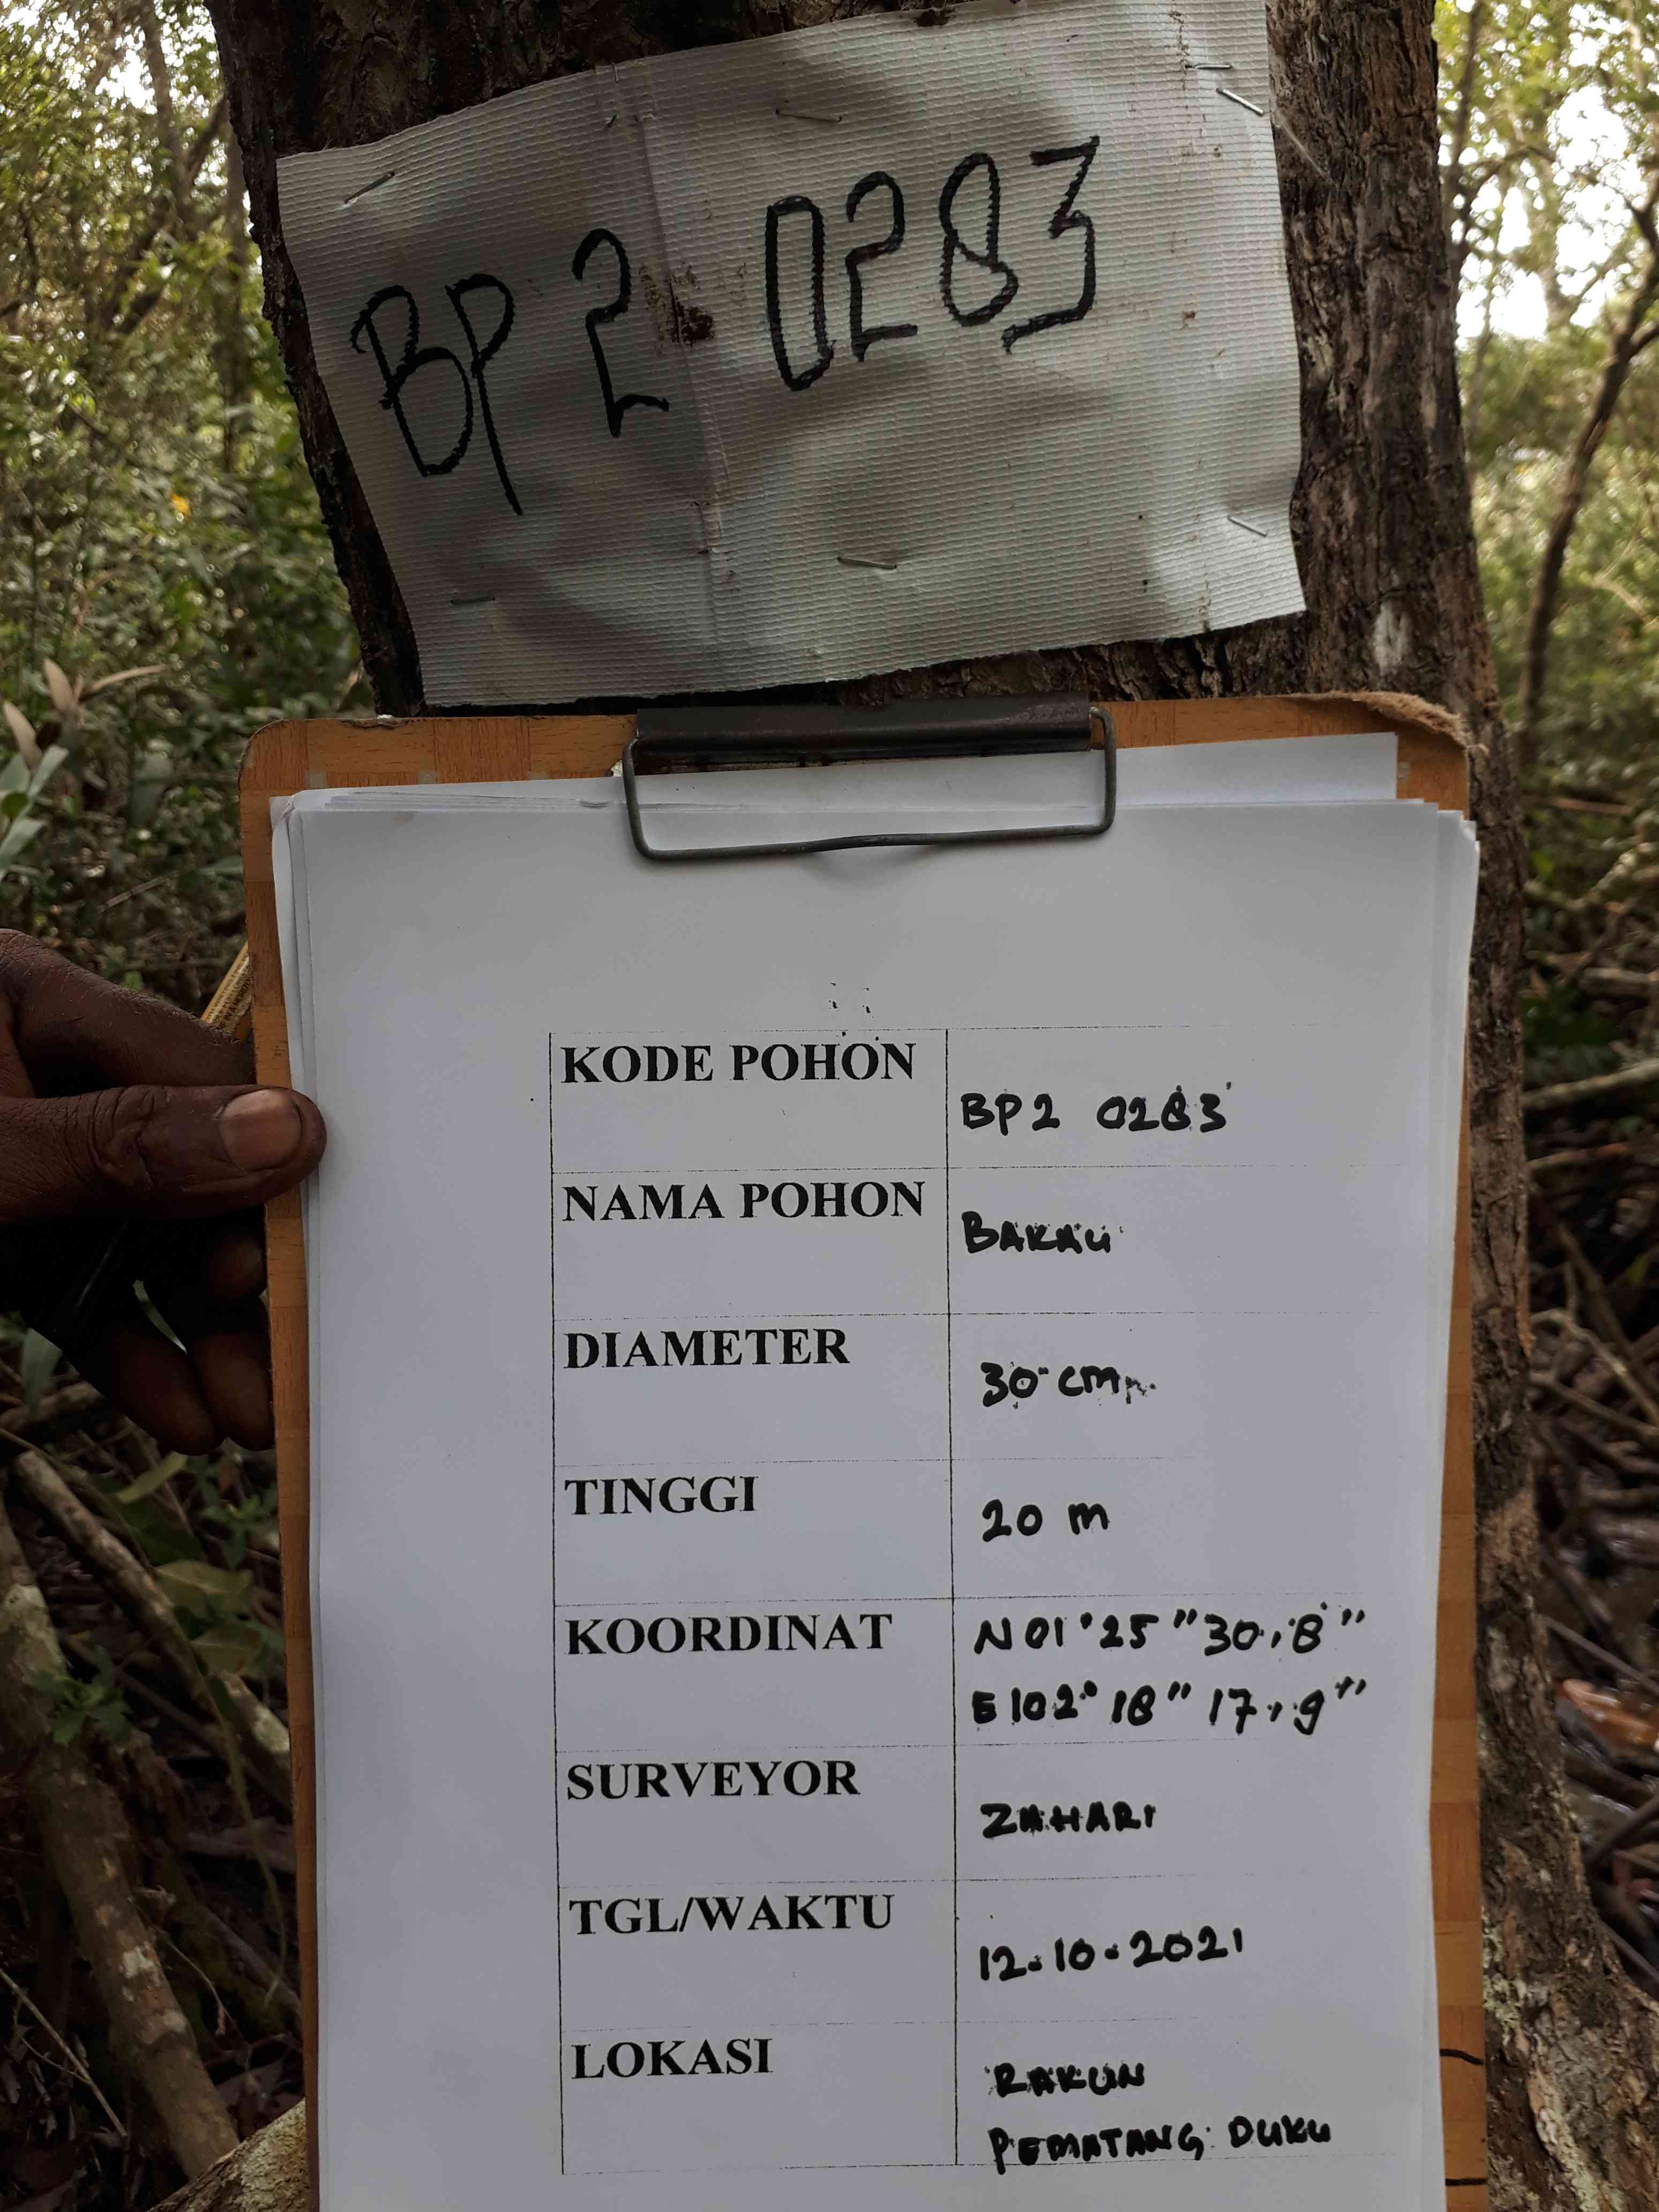 BP 2 0283
KODE POHON
BP2 0283
NAMA POHON
BAKAU
DIAMETER
30 cm
TINGGI
20 m
KOORDINAT
N 01°25"30,8"
E 102°18"17,9"
SURVEYOR
ZAHARI
TGL/WAKTU
12.10.2021
LOKASI
RAKUN
PEMATANG DUKU